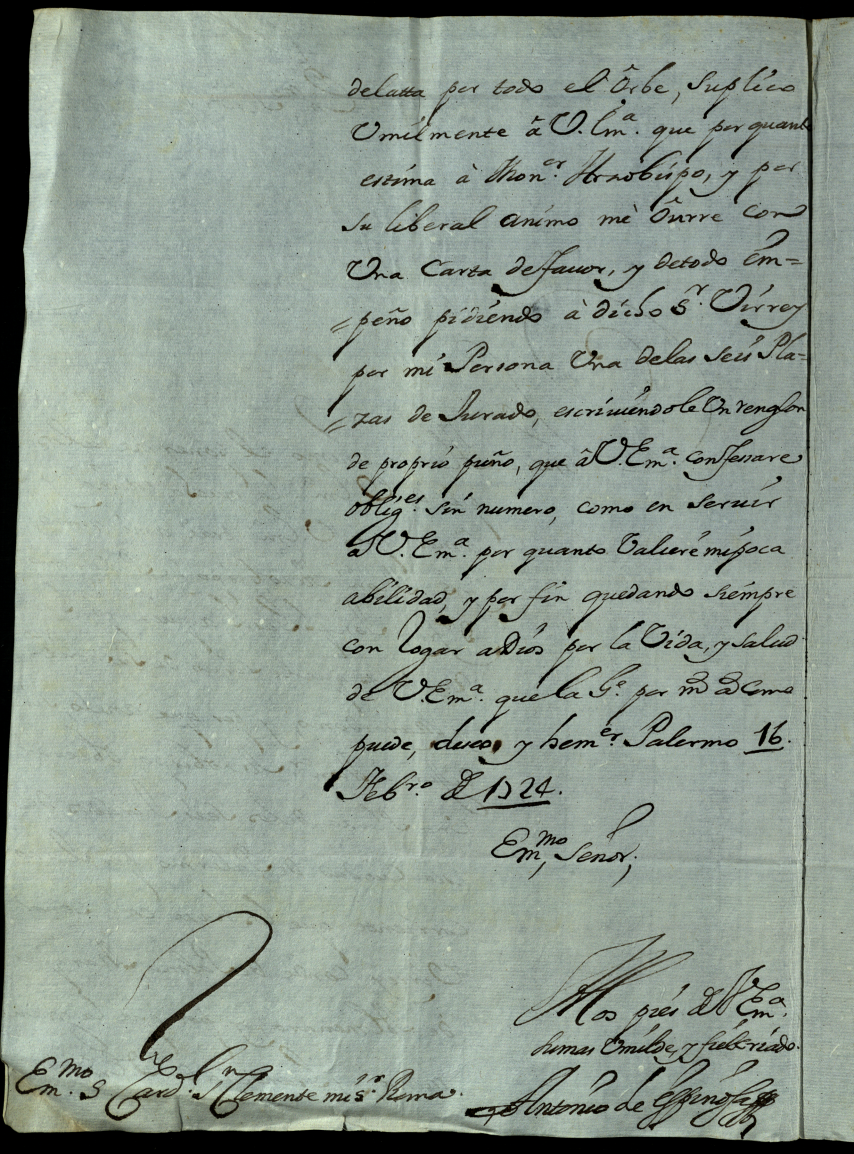 delatta por todo el Orbe, suplico
Umilmente â V. Em.ª que por quanto
estima à Mon.er Arzobispo, y por
su liberal animo mè onrre con
Una Carta de favor, y de todo Em=
=peño pidiendo à dicho S.r Virrey
por mi Persona Una delas seis Pla=
=zas de Jurado, escriviendole Un renglon
de proprio puño, que â V. Em.ª confessare
oblig.es sin numero, como en servir
a V. Em.ª por quanto Valiere mi poca
abilidad, y por fin quedando siempre
con rogar a Dios por la Vida, y salud
de V. Em.ª que la G.e por como
puede, deseo, y hem.er Palermo 16.
Febr.o de 1724.
Em.mo Señor,
A los piés de V. Em.ª
su mas Umilde, y fiel criado.
Em.mo S.r Card.l S.n Clemente mi s.r Roma.
Antonio de Espinosa